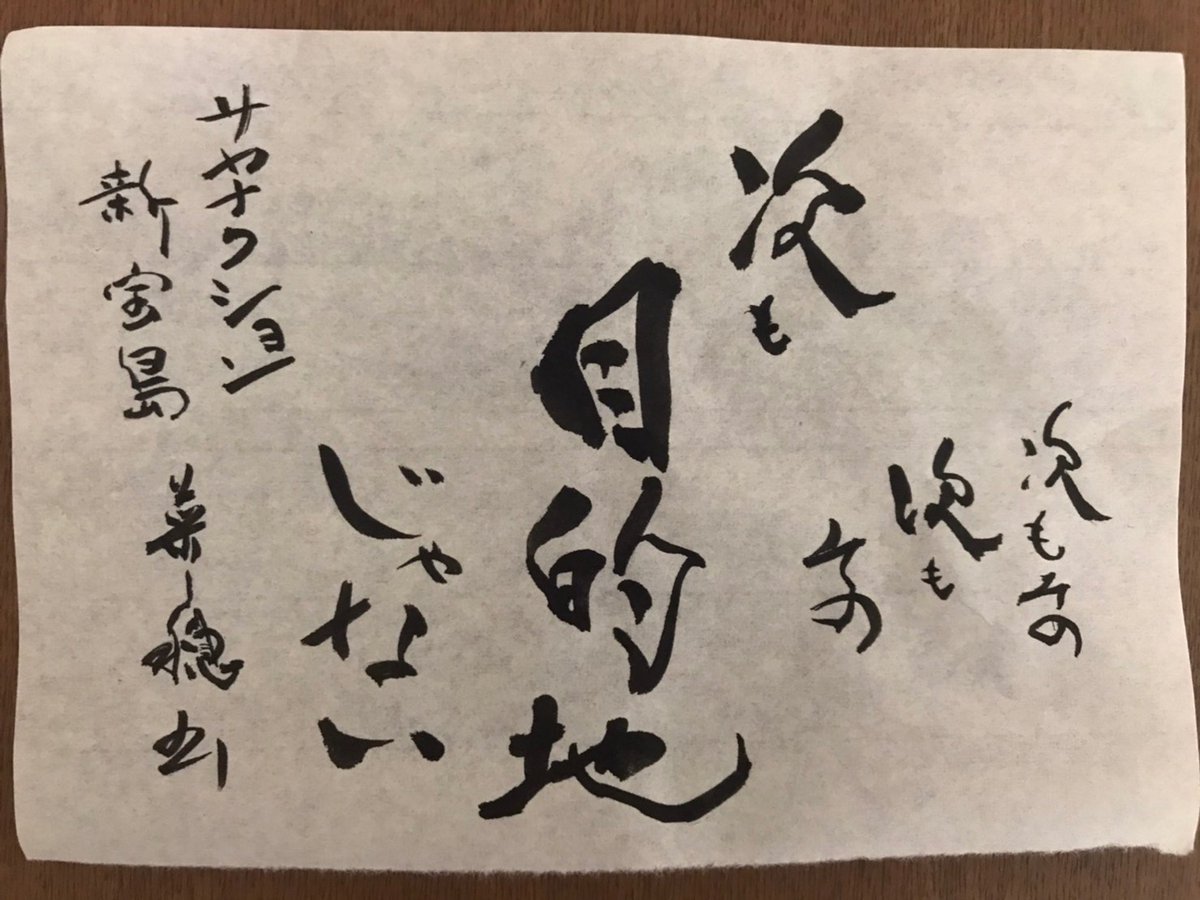 次もその
次も
その
次も
目的地
じゃない
サカナクション
新宝島